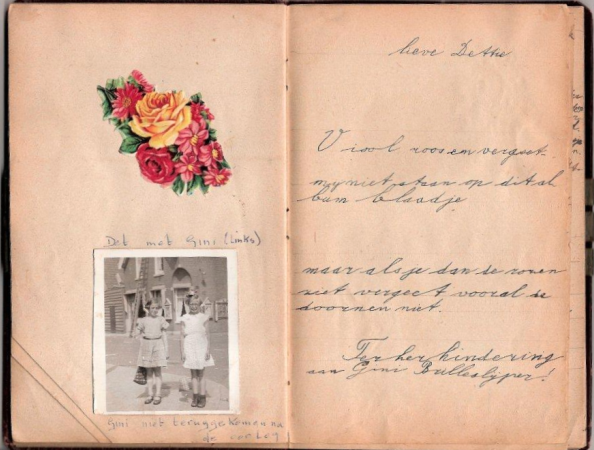 Det met Gini (Links)
Gini niet teruggekomen na
de oorlog
lieve Detke
Viool roos en vergeet
myniet staan op dit al
bum blaadje
maar als je dan de rozen
ziet vergeet vooral de
doornen niet.
Ter her hindering
aan Gini